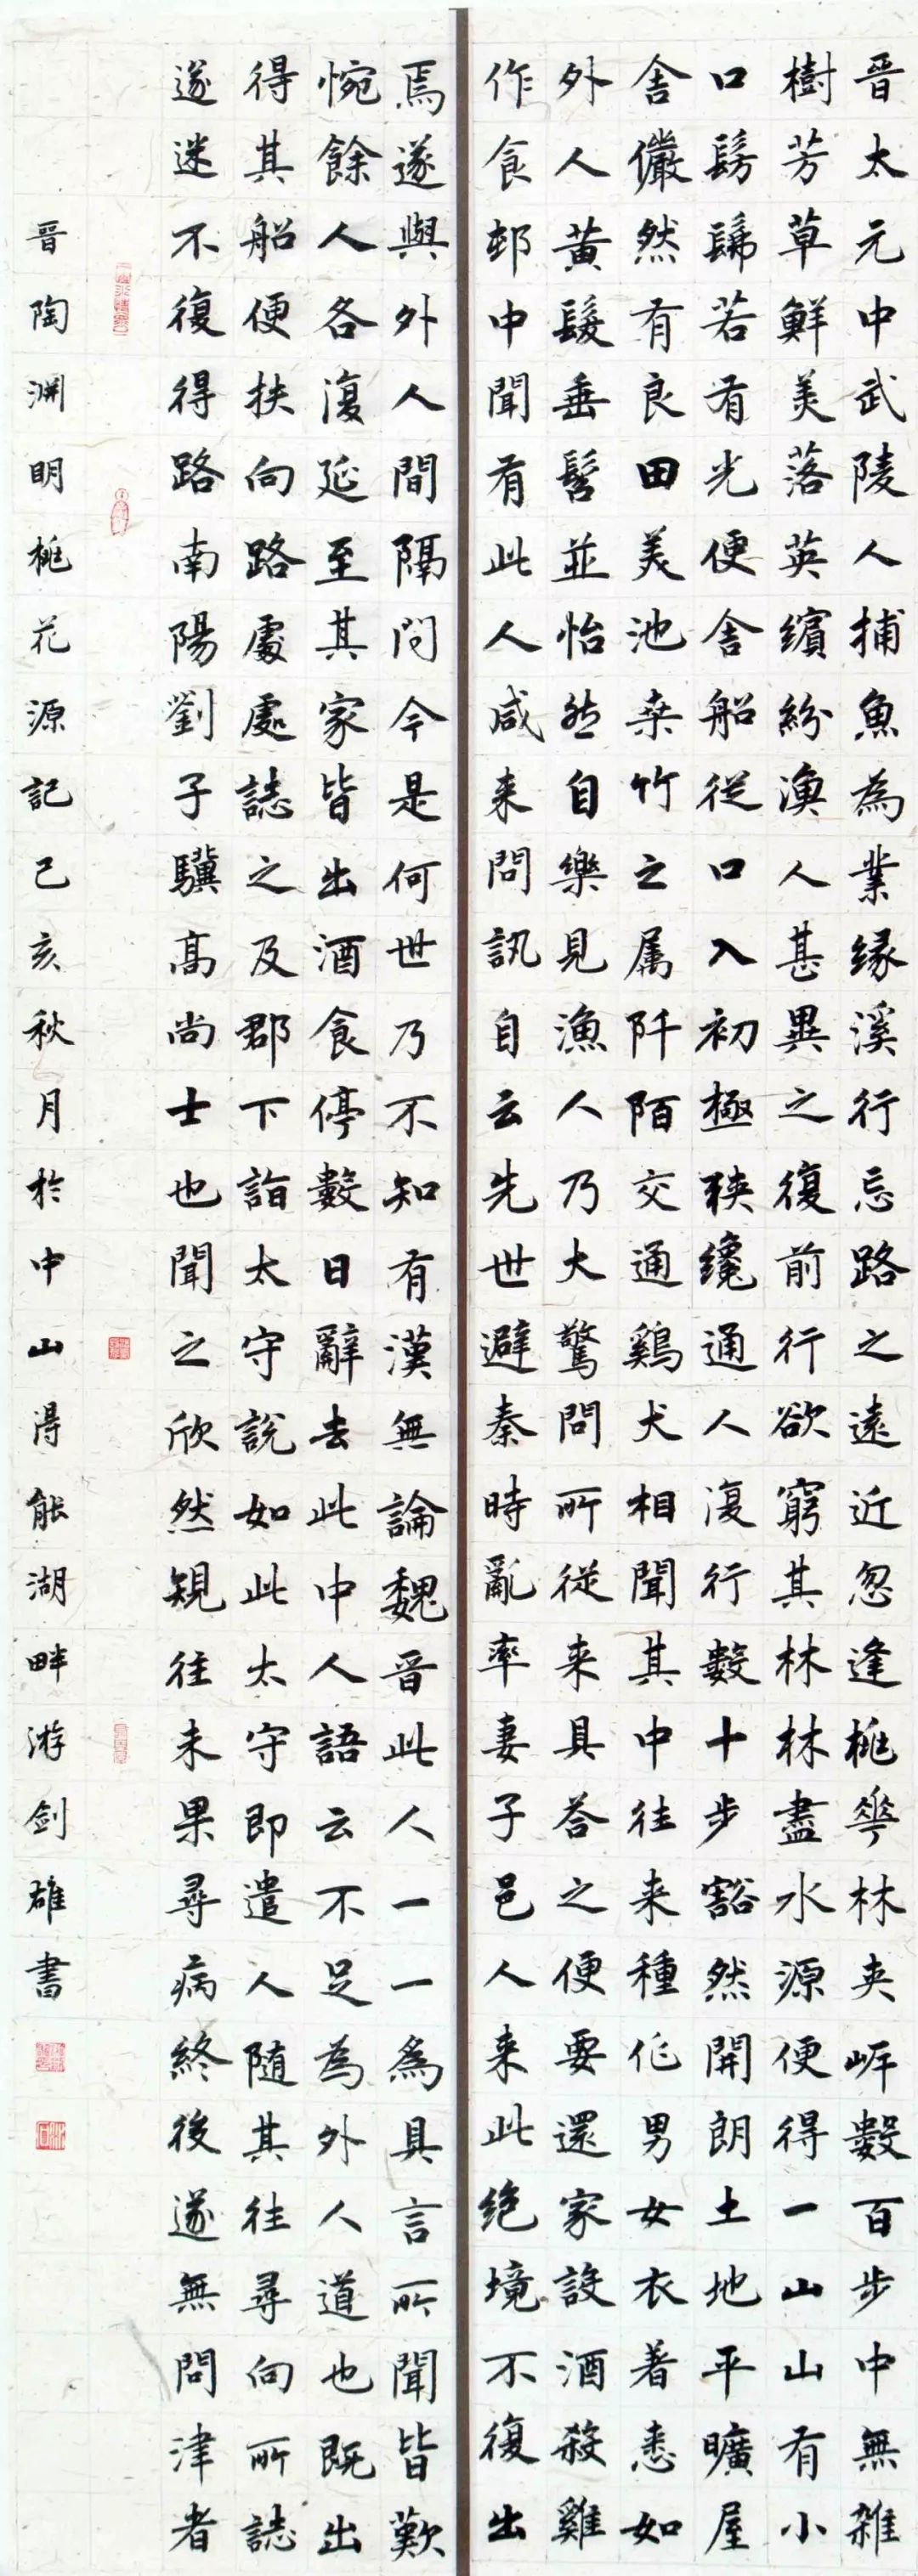 晋太元中武陵人捕魚為業緣溪行忘路之遠近忽逢桃華林夾岸數百步中無雜
樹芳草鮮美落英繽紛漁人甚異之復前行欲窮其林林盡水源便得一山山有小
口髣髴若有光便舍船從口入初極狹纔通人復行數十步豁然開朗土地平曠屋
舍儼然有良田美池桑竹之属阡陌交通鷄犬相聞其中往来種作男女衣着悉如
外人黃髮垂髫並怡然自樂見漁人乃大驚問所從来具答之便要還家設酒殺雞
作食邨中聞有此人咸来問訊自云先世避秦時亂率妻子邑人来此絶境不復出
焉遂與外人間隔問今是何世乃不知有漢無論魏晋此人一一為具言所聞皆歎
惋餘人各復延至其家皆出酒食停數日辭去此中人語云不足為外人道也既出
得其船便扶向路處處誌之及郡下詣太守說如此太守即遣人随其往尋向所誌
遂迷不復得路南陽劉子驥高尚士也聞之欣然規往未果尋病終後遂無問津者
晋陶淵明桃花源記己亥秋月於中山得能湖畔游剑雄書